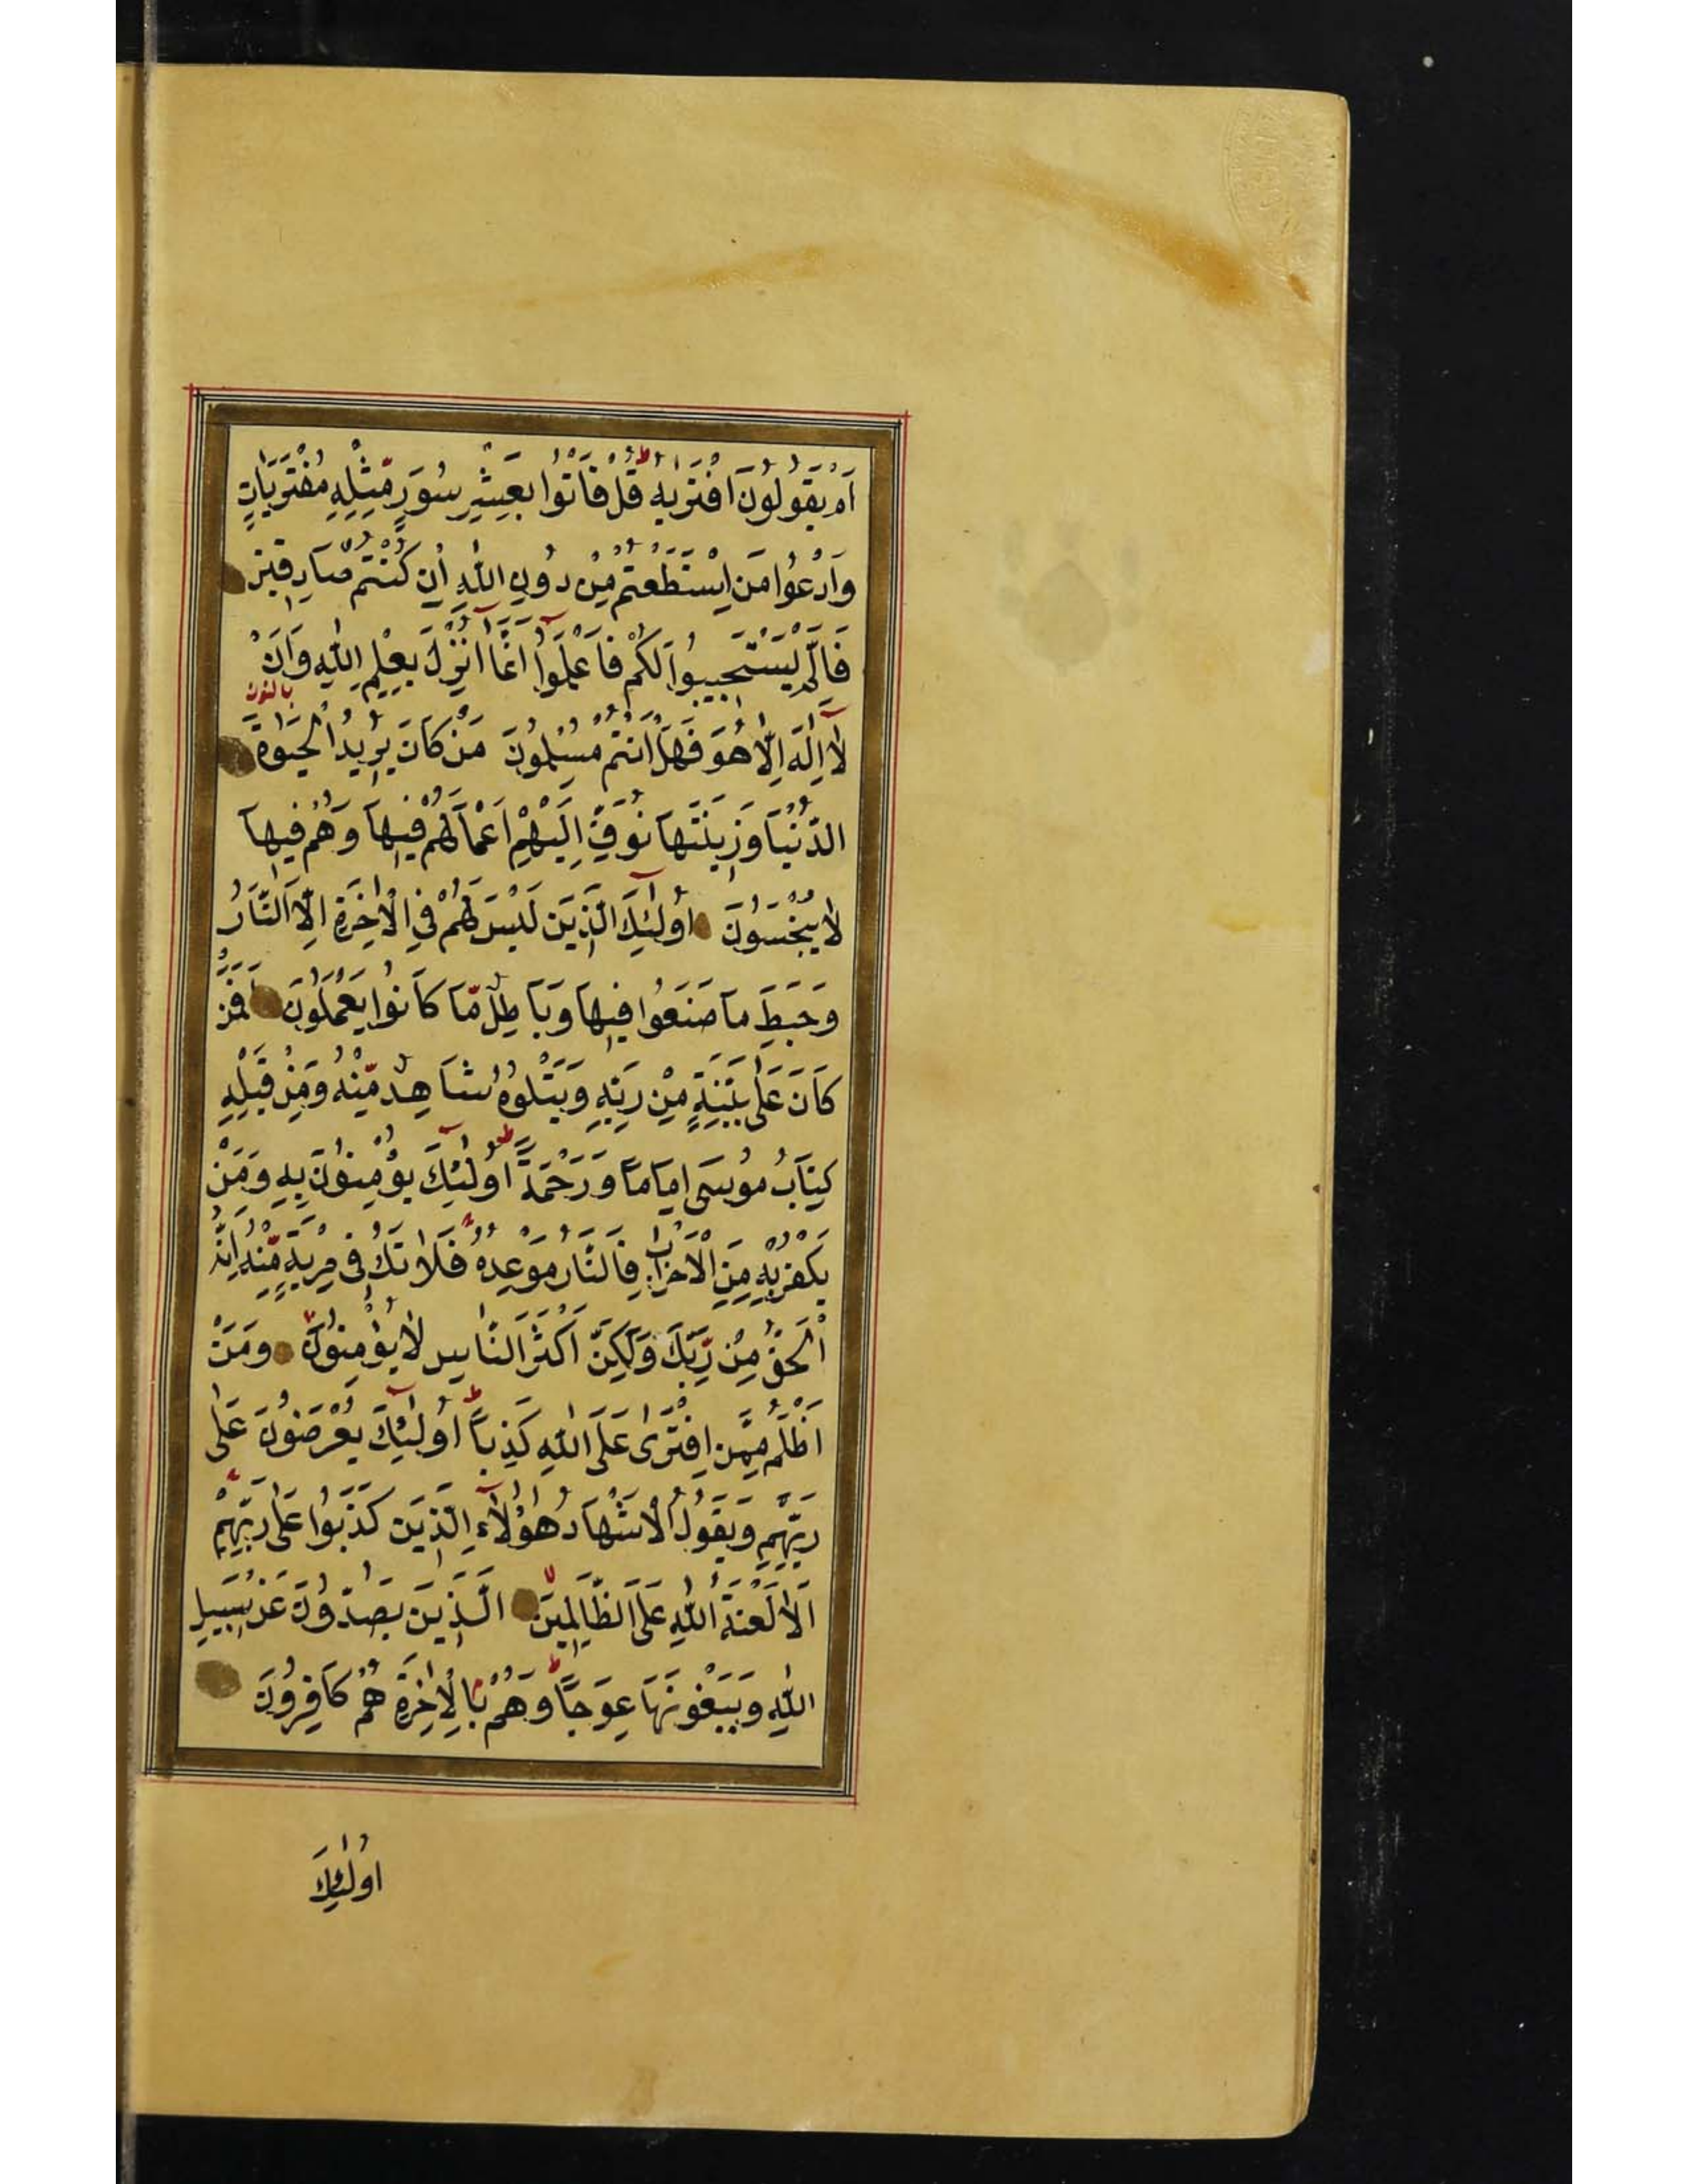 اَمْ يَقُولُونَ افْتَرٰيهُ قُلْ فَأْتُوا بِعَشْرِ سُوَرٍ مِّثْلِهِ مُفْتَرَيَاتٍ
وَادْعُوا مَنِ اسْتَطَعْتُمْ مِنْ دُونِ اللّٰهِ اِنْ كُنْتُمْ صَادِقِينَ
فَاِلَّمْ يَسْتَجِيبُوا لَكُمْ فَاعْلَمُوٓا اَنَّمَٓا اُنْزِلَ بِعِلْمِ اللّٰهِ وَاَنْ
بالنون
لَٓا اِلٰهَ اِلَّا هُوَ فَهَلْ اَنْتُمْ مُسْلِمُونَ مَنْ كَانَ يُرِيدُ الْحَيٰوةَ
الدُّنْيَا وَزِينَتَهَا نُوَفِّ اِلَيْهِمْ اَعْمَالَهُمْ فِيهَا وَهُمْ فِيهَا
لَا يُبْخَسُونَ اُولٰٓئِكَ الَّذِينَ لَيْسَ لَهُمْ فِي الْاٰخِرَةِ اِلَّا النَّارُ
وَحَبِطَ مَا صَنَعُوا فِيهَا وَبَاطِلٌ مَّا كَانُوا يَعْمَلُونَ اَفَمَنْ
كَانَ عَلٰى بَيِّنَةٍ مِنْ رَبِّهِ وَيَتْلُوهُ شَاهِدٌ مِّنْهُ وَمِنْ قَبْلِهِ
كِتَابُ مُوسَى اِمَامًا وَرَحْمَةً اُولٰٓئِكَ يُؤْمِنُونَ بِهِ وَمَنْ
يَكْفُرْ بِهِ مِنَ الْاَحْزَابِ فَالنَّارُ مَوْعِدُهُ فَلَا تَكُ فِي مِرْيَةٍ مِّنْهُ اِنَّهُ
الْحَقُّ مِنْ رَّبِّكَ وَلٰكِنَّ اَكْثَرَ النَّاسِ لَا يُؤْمِنُونَ وَمَنْ
اَظْلَمُ مِمَّنِ افْتَرٰى عَلَى اللّٰهِ كَذِبًا اُولٰٓئِكَ يُعْرَضُونَ عَلٰى
رَبِّهِمْ وَيَقُولُ الْاَشْهَادُ هٰٓؤُلَٓاءِ الَّذِينَ كَذَبُوا عَلٰى رَبِّهِمْ
اَلَا لَعْنَةُ اللّٰهِ عَلَى الظَّالِمِينَ الَّذِينَ يَصُدُّونَ عَنْ سَبِيلِ
اللّٰهِ وَيَبْغُونَهَا عِوَجًا وَهُمْ بِالْاٰخِرَةِ هُمْ كَافِرُونَ
اُولٰئِكَ